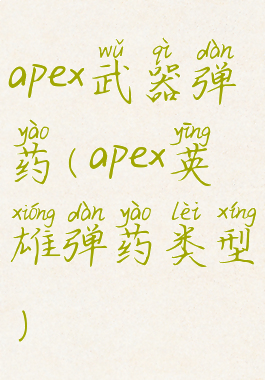 wǔ qì dàn
apex武器弹
yào yīng
药(apex英
xióng dàn yào lèi xíng
雄弹药类型
)